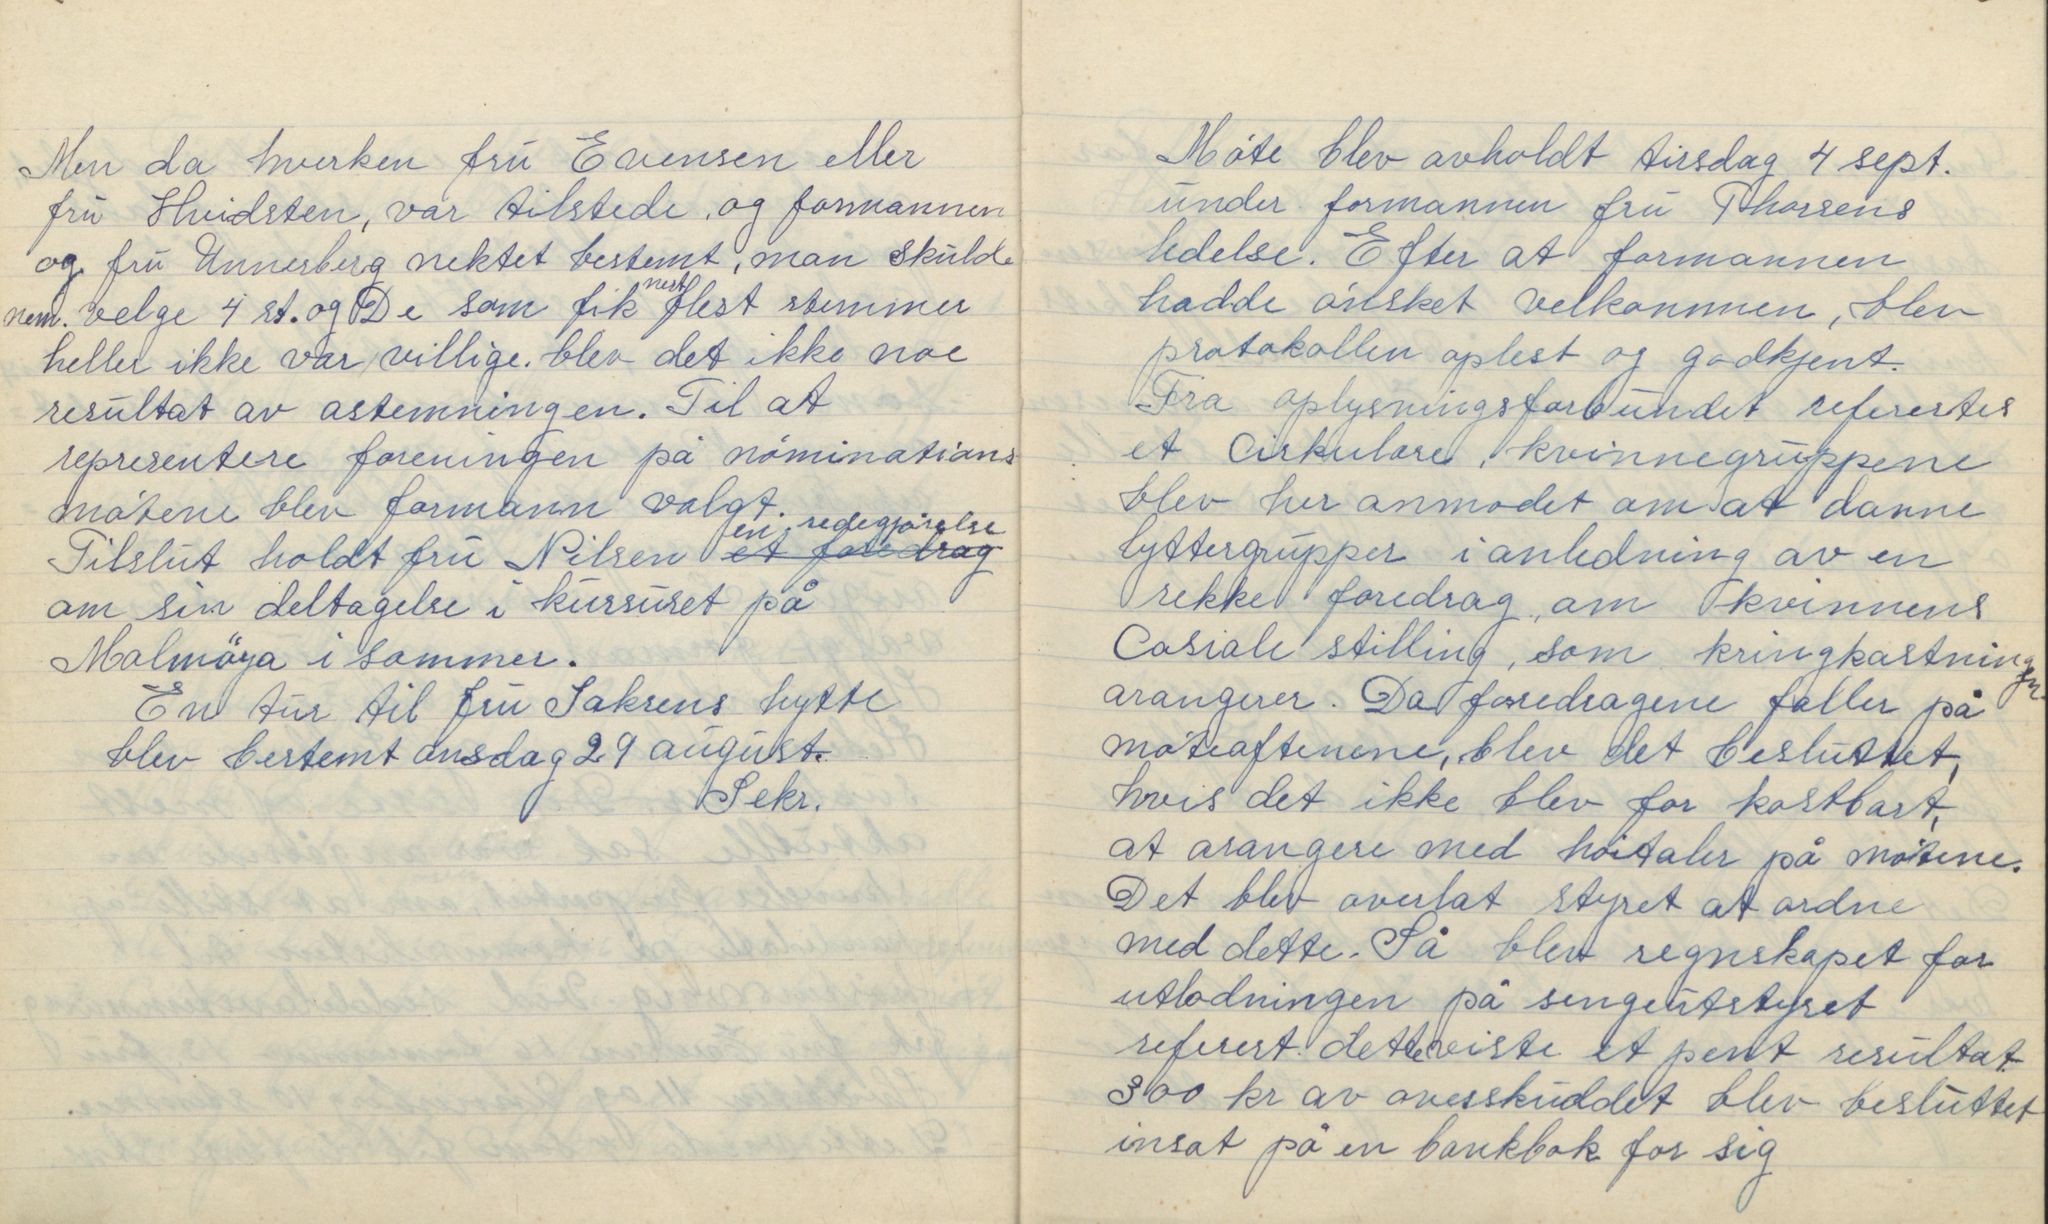 Men da hverken fru Evensen eller
fru Hvidsten, var tilstede, og formannen
og fru Unnerberg nektet bestemt, man skulde
nem. velge 4 st. og De som fik nest flest stemmer
heller ikke var villige. blev det ikke noe
resultat av astemningen. Til at
representere foreningen på nominations
møtene blev formann valgt.
en redegjørelse
Tilslut holdt fru Nilsen et foredrag
om sin deltagelse i kursuset på
Malmöya i sommer.
En tur til fru Saksens hytte
blev bestemt onsdag 29 august.
Sekr.
Møte blev avholdt tirsdag 4 sept.
under formannen fru Thorsens
ledelse. Efter at formannen
hadde ønsket velkommen, blev
protokollen oplest og godkjent.
Fra oplysningsforbundet referertes
et Cirkulære, kvinnegruppene
blev her anmodet om at danne
lyttergrupper i anledning av en
rekke foredrag, om kvinnens
Cosiale stilling, som kringkastningen
arangerer. Da foredragene faller på
møteaftenene, blev det besluttet,
hvis det ikke blev for kostbart,
at arangere med høitaler på møtene.
Det blev overlat styret at ordne
med dette. Så blev regnskapet for
utlodningen på sengeutstyret
referert. dette viste et pent resultat
300 kr av overskuddet blev besluttet
insat på en bankbok for sig